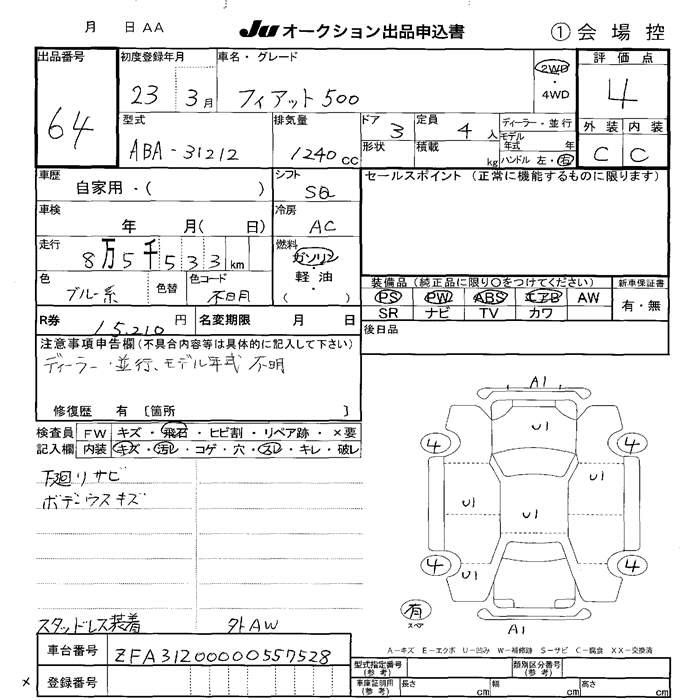 月　日 AA　JU オークション出品申込書　① 会場控
出品番号　初度登録年月　車名・グレード　2WD・4WD　評価点
64　23　3月　フィアット 500　4
型式　排気量　ドア 3　定員 4人　ディーラー・並行　外装　内装
ABA-31212　1240cc　形状　積載 kg　モデル年式 年　ハンドル 左・右　C　C
車歴　自家用・(　)　シフト　SQ　セールスポイント (正常に機能するものに限ります)
車検　年　月(　日)　冷房　AC
走行　8万5千533km　燃料　ガソリン・軽油・(　)
色　ブルー系　色替　色コード　不明　装備品 (純正品に限り〇をつけてください)　新車保証書
PS　PW　ABS　エアB　AW　有・無
SR　ナビ　TV　カワ
R券　15,210円　名変期限　月　日　後日品
注意事項申告欄(不具合内容等は具体的に記入して下さい)
ディーラー・並行、モデル年式 不明
修復歴　有　〔箇所　〕
検査員記入欄　FW　キズ・飛石・ヒビ割・リペア跡・×要
内装　キズ・汚レ・コゲ・穴・スレ・キレ・破レ
下廻リサビ
ボデーウスキズ
A1
U1
4　4
U1　U1　U1
4　4
U1
有
スペア
A1
スタッドレス装着　外AW
A-キズ　E-エクボ　U-凹み　W-補修跡　S-サビ　C-腐食　XX-交換済
車台番号　ZFA31200000557528
×　登録番号
型式指定番号(参考)　類別区分番号(参考)
車庫証明用(参考)　長さ cm　幅 cm　高さ cm